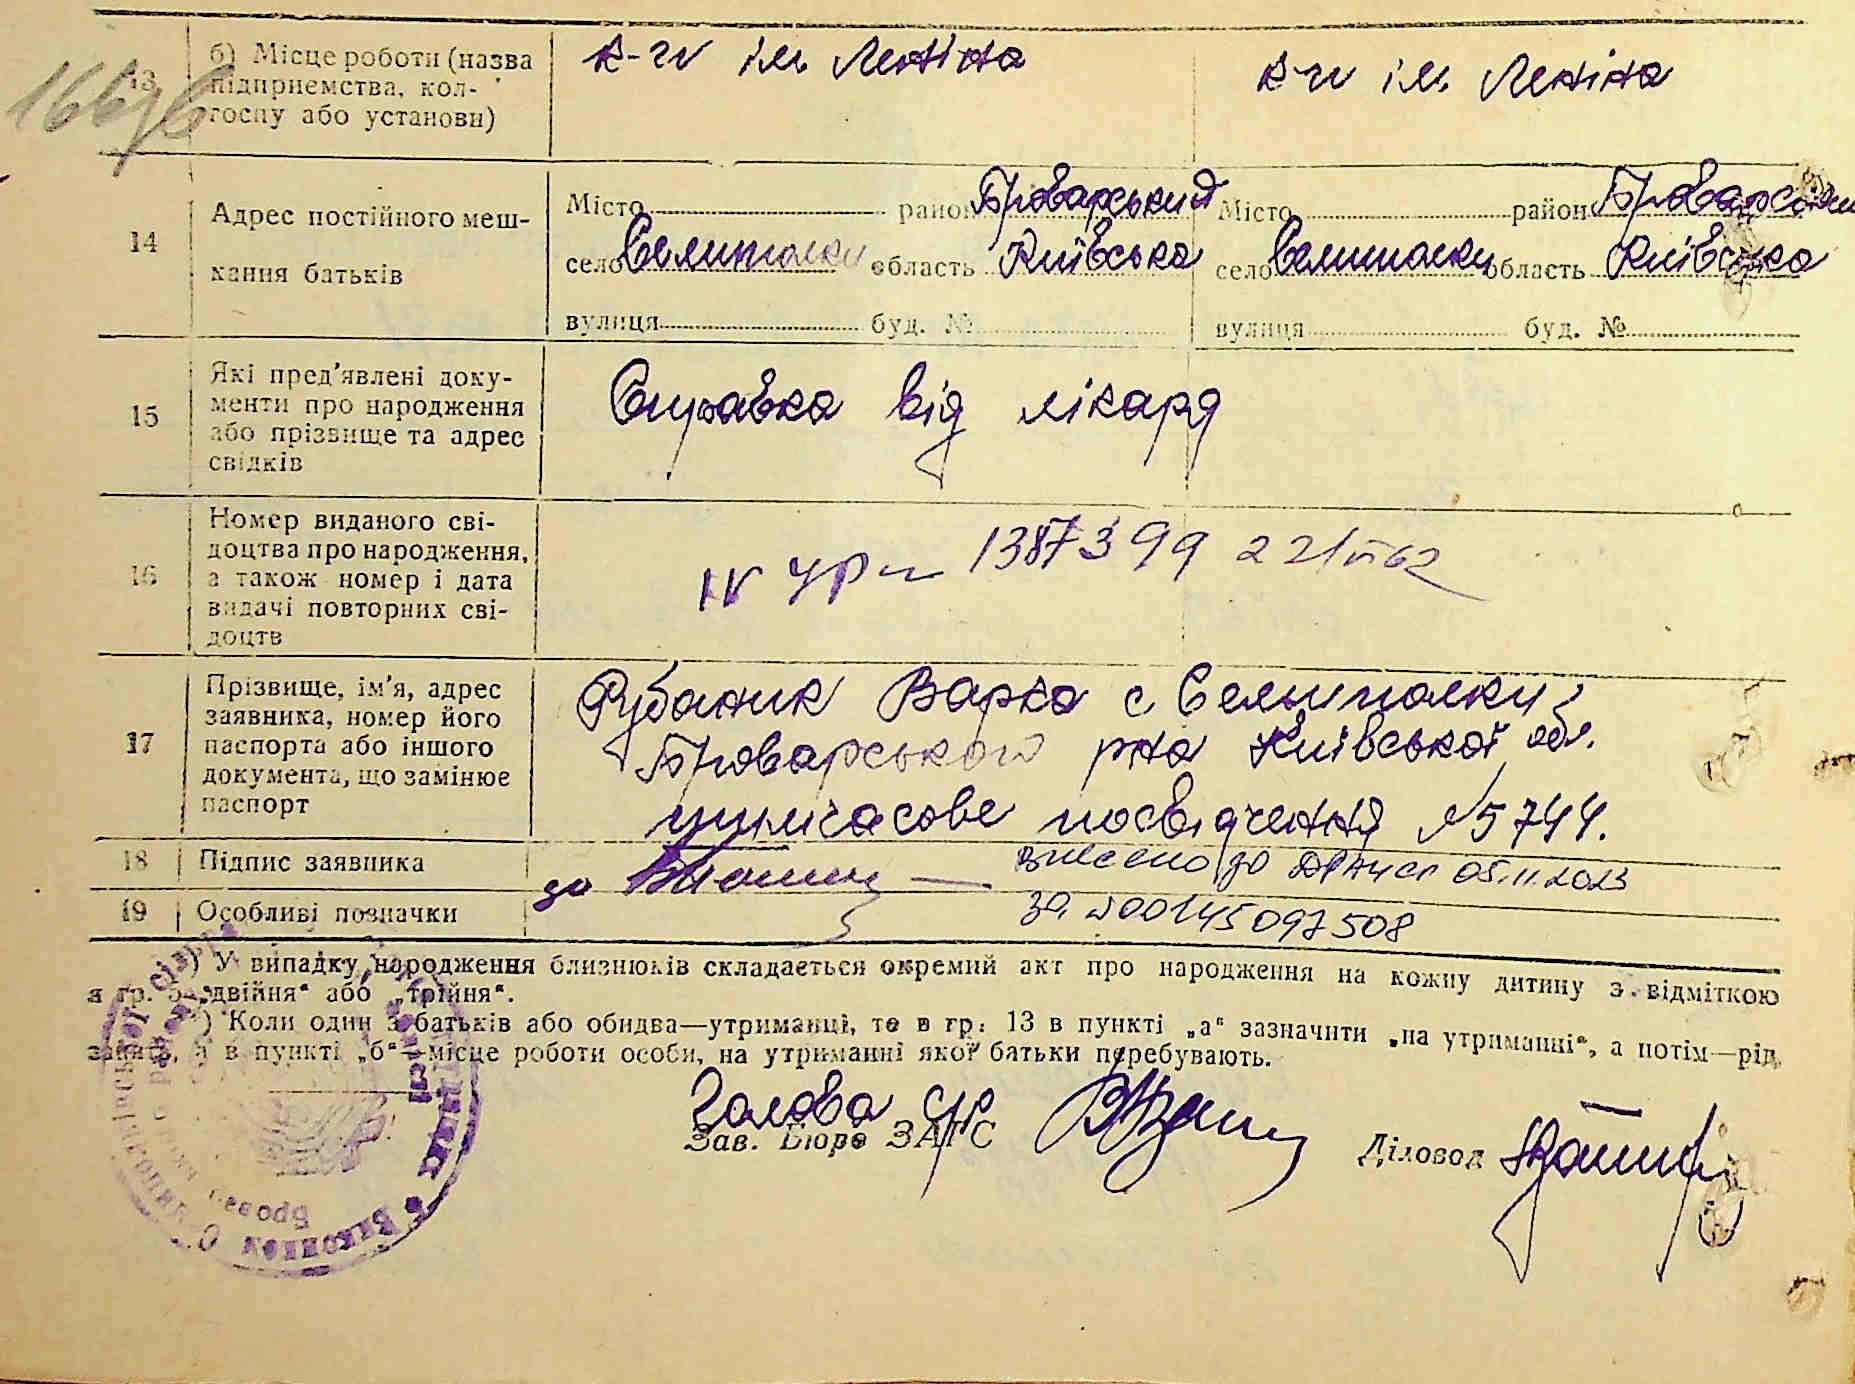 13 б) Місце роботи (назва підприємства, колгоспу або установи)
к-г ім. Леніна
к-г ім. Леніна
14 Адрес постійного меш-
кання батьків
Місто район Броварський
село Семиполки область Київська
вулиця буд. №
Місто район Броварський
село Семиполки область Київська
вулиця буд. №
15 Які пред'явлені доку-
менти про народження
або прізвище та адрес
свідків
Справка від лікаря
16 Номер виданого сві-
доцтва про народження,
а також номер і дата
видачі повторних сві-
доцтв
1387399
17 Прізвище, ім'я, адрес
заявника, номер його
паспорта або іншого
документа, що замінює
паспорт
Рубаник Варка с. Семиполки
Броварського р-на Київської обл.
тимчасове посвідчення №5744.
18 Підпис заявника
внесено до ДРАЦСГ 05.11.2023
19 Особливі позначки
за №00145097508
*) У випадку народження близнюків складається окремий акт про народження на кожну дитину з відміткою
в гр. 5 „двійня" або „трійня".
*) Коли один з батьків або обидва—утриманці, то в гр. 13 в пункті „а" зазначити „на утриманні", а потім—рід
занять, а в пункті „б"—місце роботи особи, на утриманні якої батьки перебувають.
Голова с/р
Зав. Бюро ЗАГС
Діловод